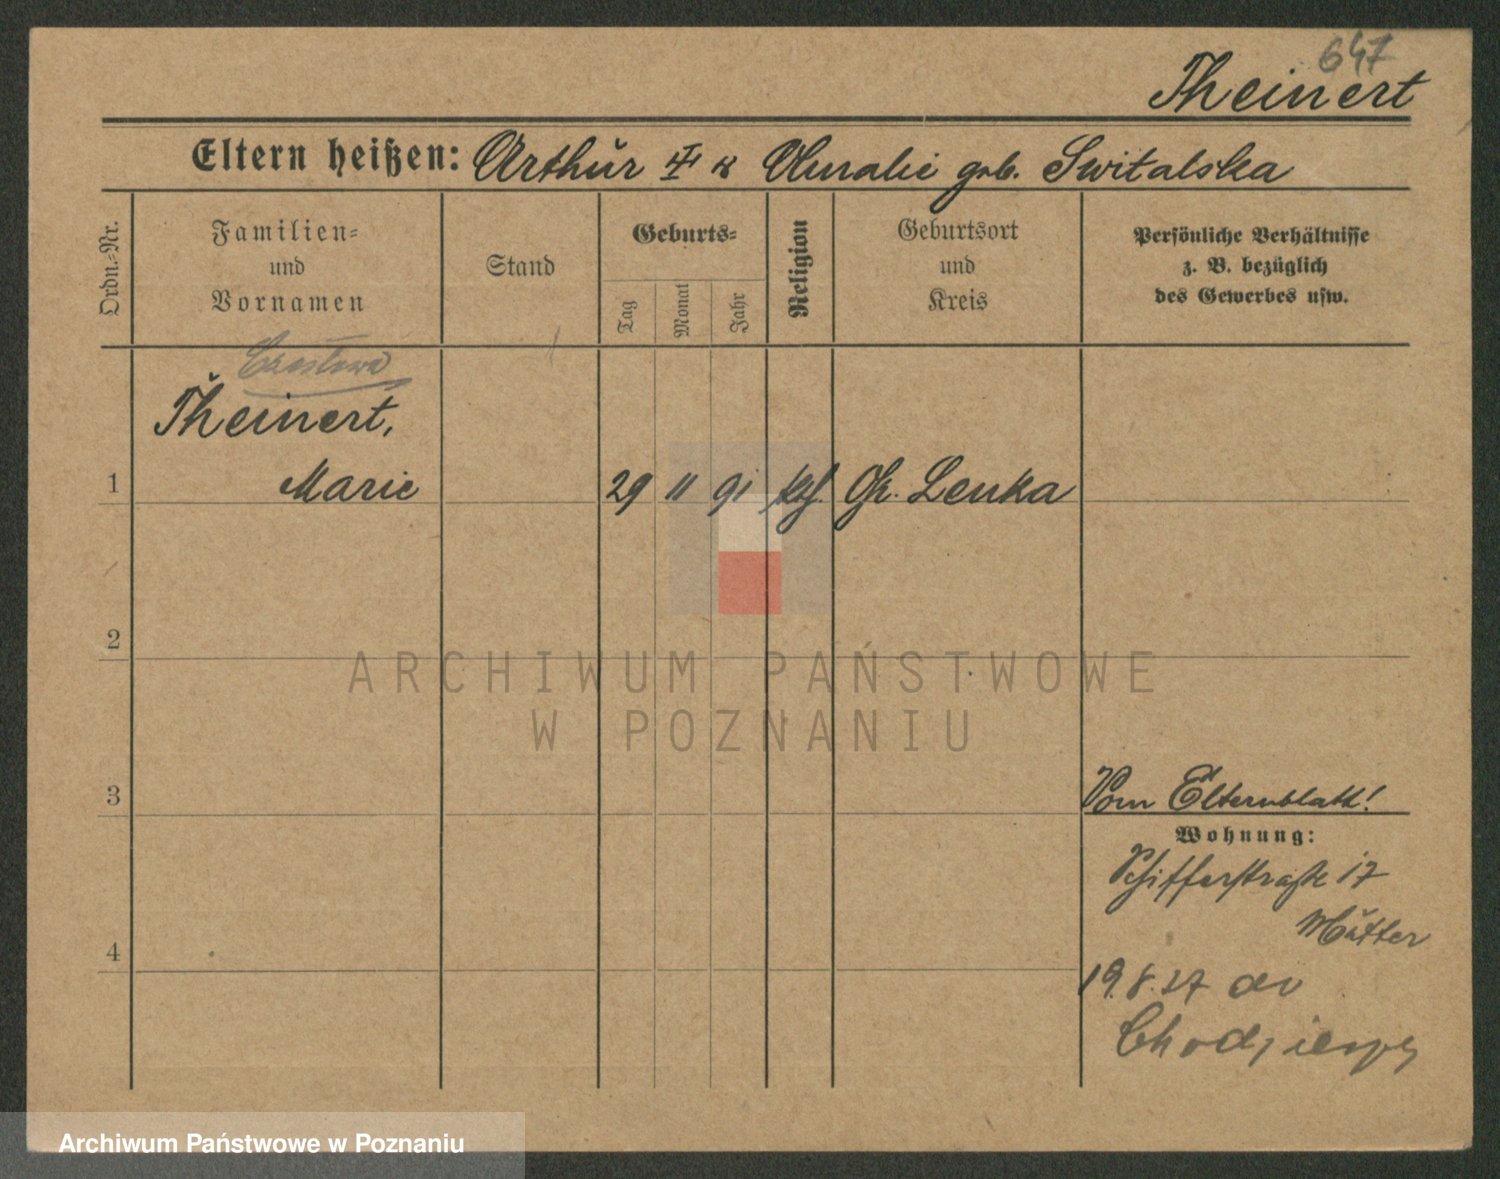 647
Theinert
Eltern heißen: Arthur u Amalie geb. Switalska
Ordn.-Nr.
Familien-
und
Vornamen
Stand
Geburts-
Tag
Monat
Jahr
Religion
Geburtsort
und
Kreis
Persönliche Verhältnisse
z. B. bezüglich
des Gewerbes usw.
Theinert,
1 Marie 29 11 91 kth. Gr. Lenka
2
3
Vom Elternblatt!
Wohnung:
Schifferstraße 17
Mutter
4
19.8.27 do
ARCHIWUM PAŃSTWOWE
W POZNANIU
Archiwum Państwowe w Poznaniu